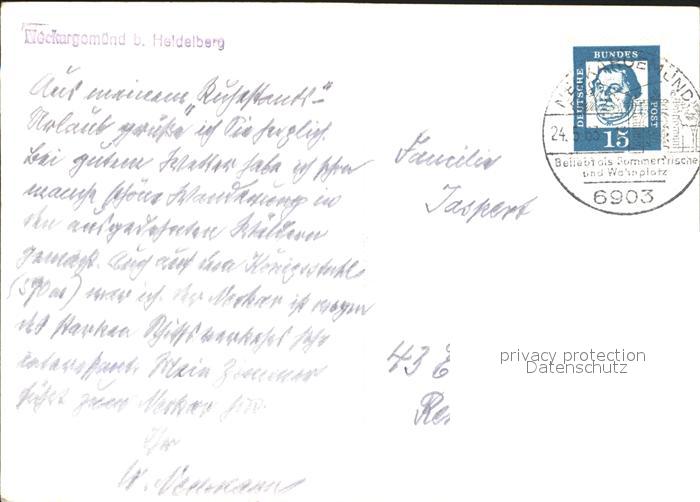 Neckargemünd b. Heidelberg
Aus meinem „Ruhestands"-
Urlaub grüße ich Sie herzlich.
Bei gutem Wetter habe ich schon
manche schöne Wanderung in
den ausgedehnten Wäldern
gemacht. Auch auf dem Königsstuhl
(570 m) war ich. Der Neckar ist wegen
des starken Schiffsverkehrs sehr
interessant. Mein Zimmer
führt zum Neckar hin.
Ihr
W.
DEUTSCHE BUNDES POST
15
NECKARGEMÜND
24.5.63
Beliebt als Sommerfrische
und Wohnplatz
6903
Familie
Jaspert
43 E
Re
privacy protection
Datenschutz